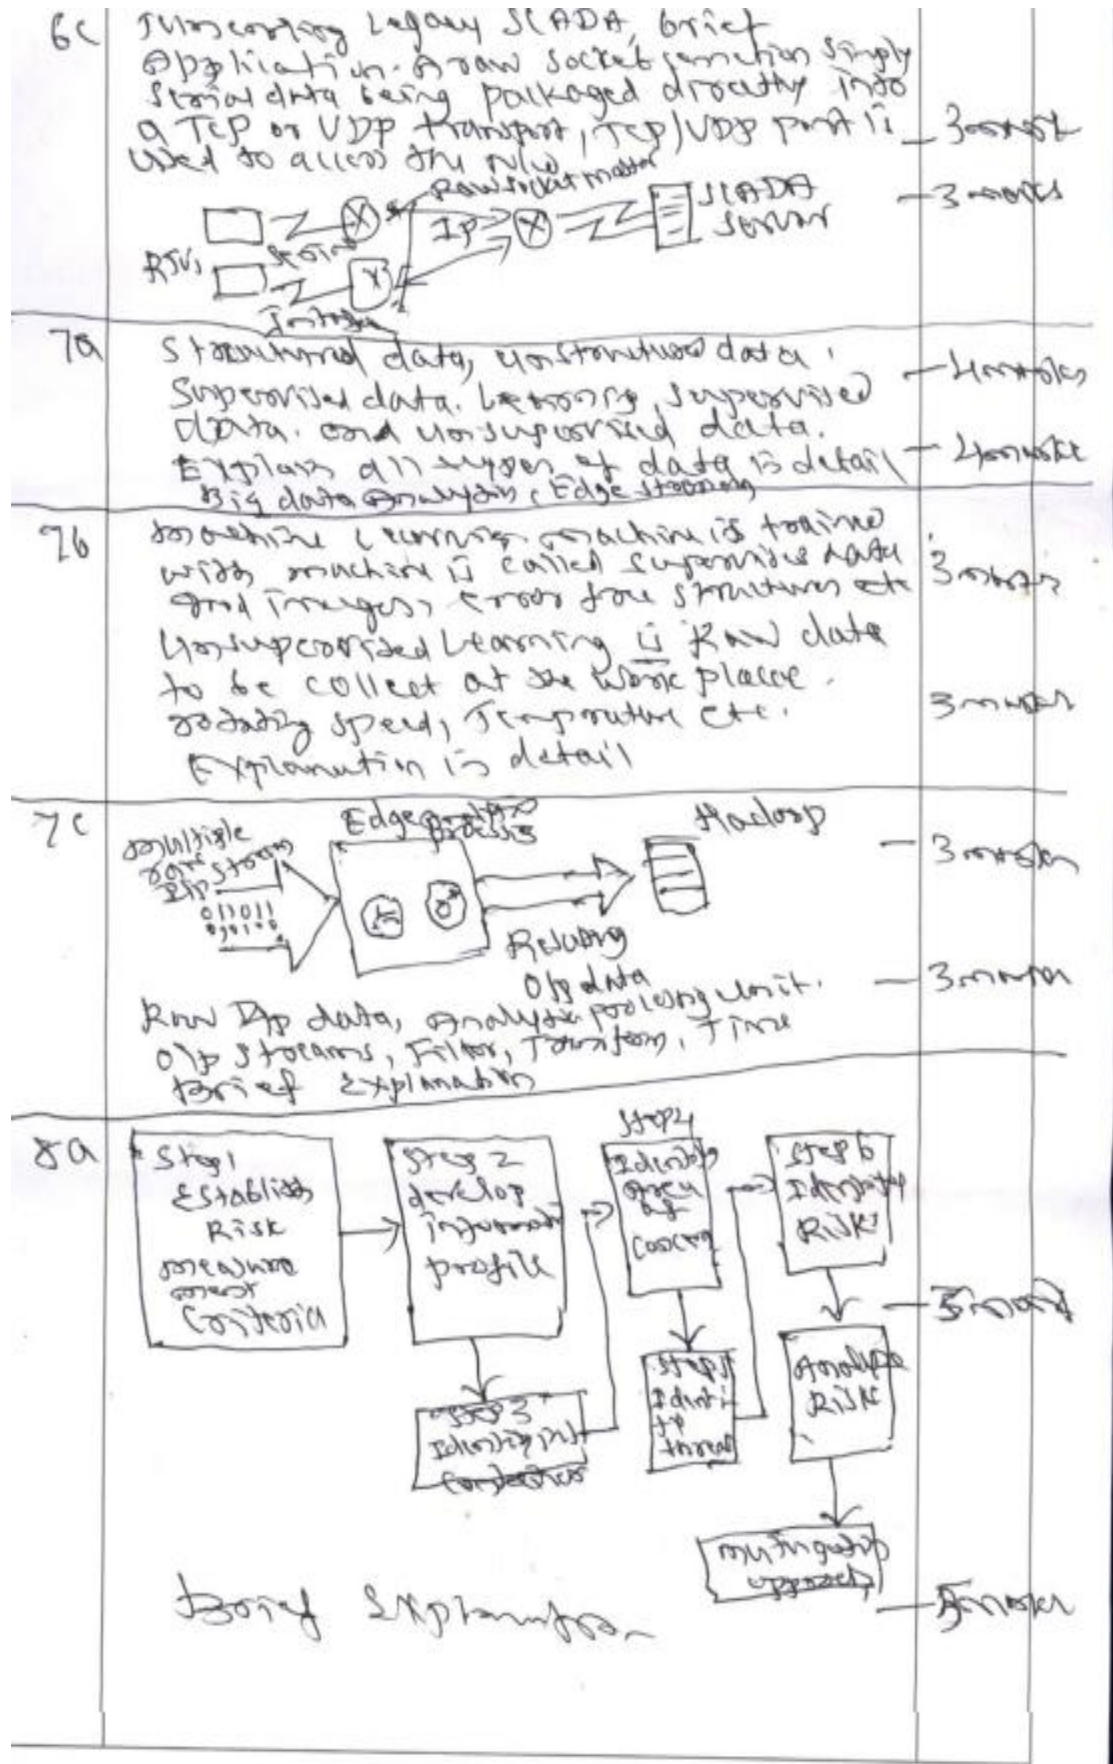 6c
Legacy SCADA, brief
Application. A raw socket connection simply
serial data being packaged directly into
a TCP or UDP transport, TCP/UDP port is
used to access the
- 3 marks
Raw socket
SCADA
Server
- 3 marks
IP
RTUs
Serial
7a
Structured data, unstructured data.
- 4 marks
Supervised data. Learning, supervised
data. and unsupervised data.
Explain all types of data in detail
- 4 marks
Big data Analysis, Edge streaming
7b
machine Learning machine is trained
with machine is called supervised data
3 marks
and images, error structures etc
Unsupervised Learning is Raw data
to be collect at the work place.
3 marks
rotating speed, Temprature etc.
Explanation in detail
7c
Edge
Hadoop
- 3 marks
multiple
stream
I/p
011011
Relating
O/p data
- 3 marks
Raw I/p data, Analysis processing unit.
O/p streams, Filter, Transform, Time
Brief Explanation
8a
Step 1
Establish
Risk
measure
ment
Criteria
Step 2
develop
profile
Step 3
Step 4
Identify
area
of
Concern
Identi
fy
threat
Step 6
Identify
Risks
Analyze
Risk
- 5 mark
approach
Brief
- 5 marks